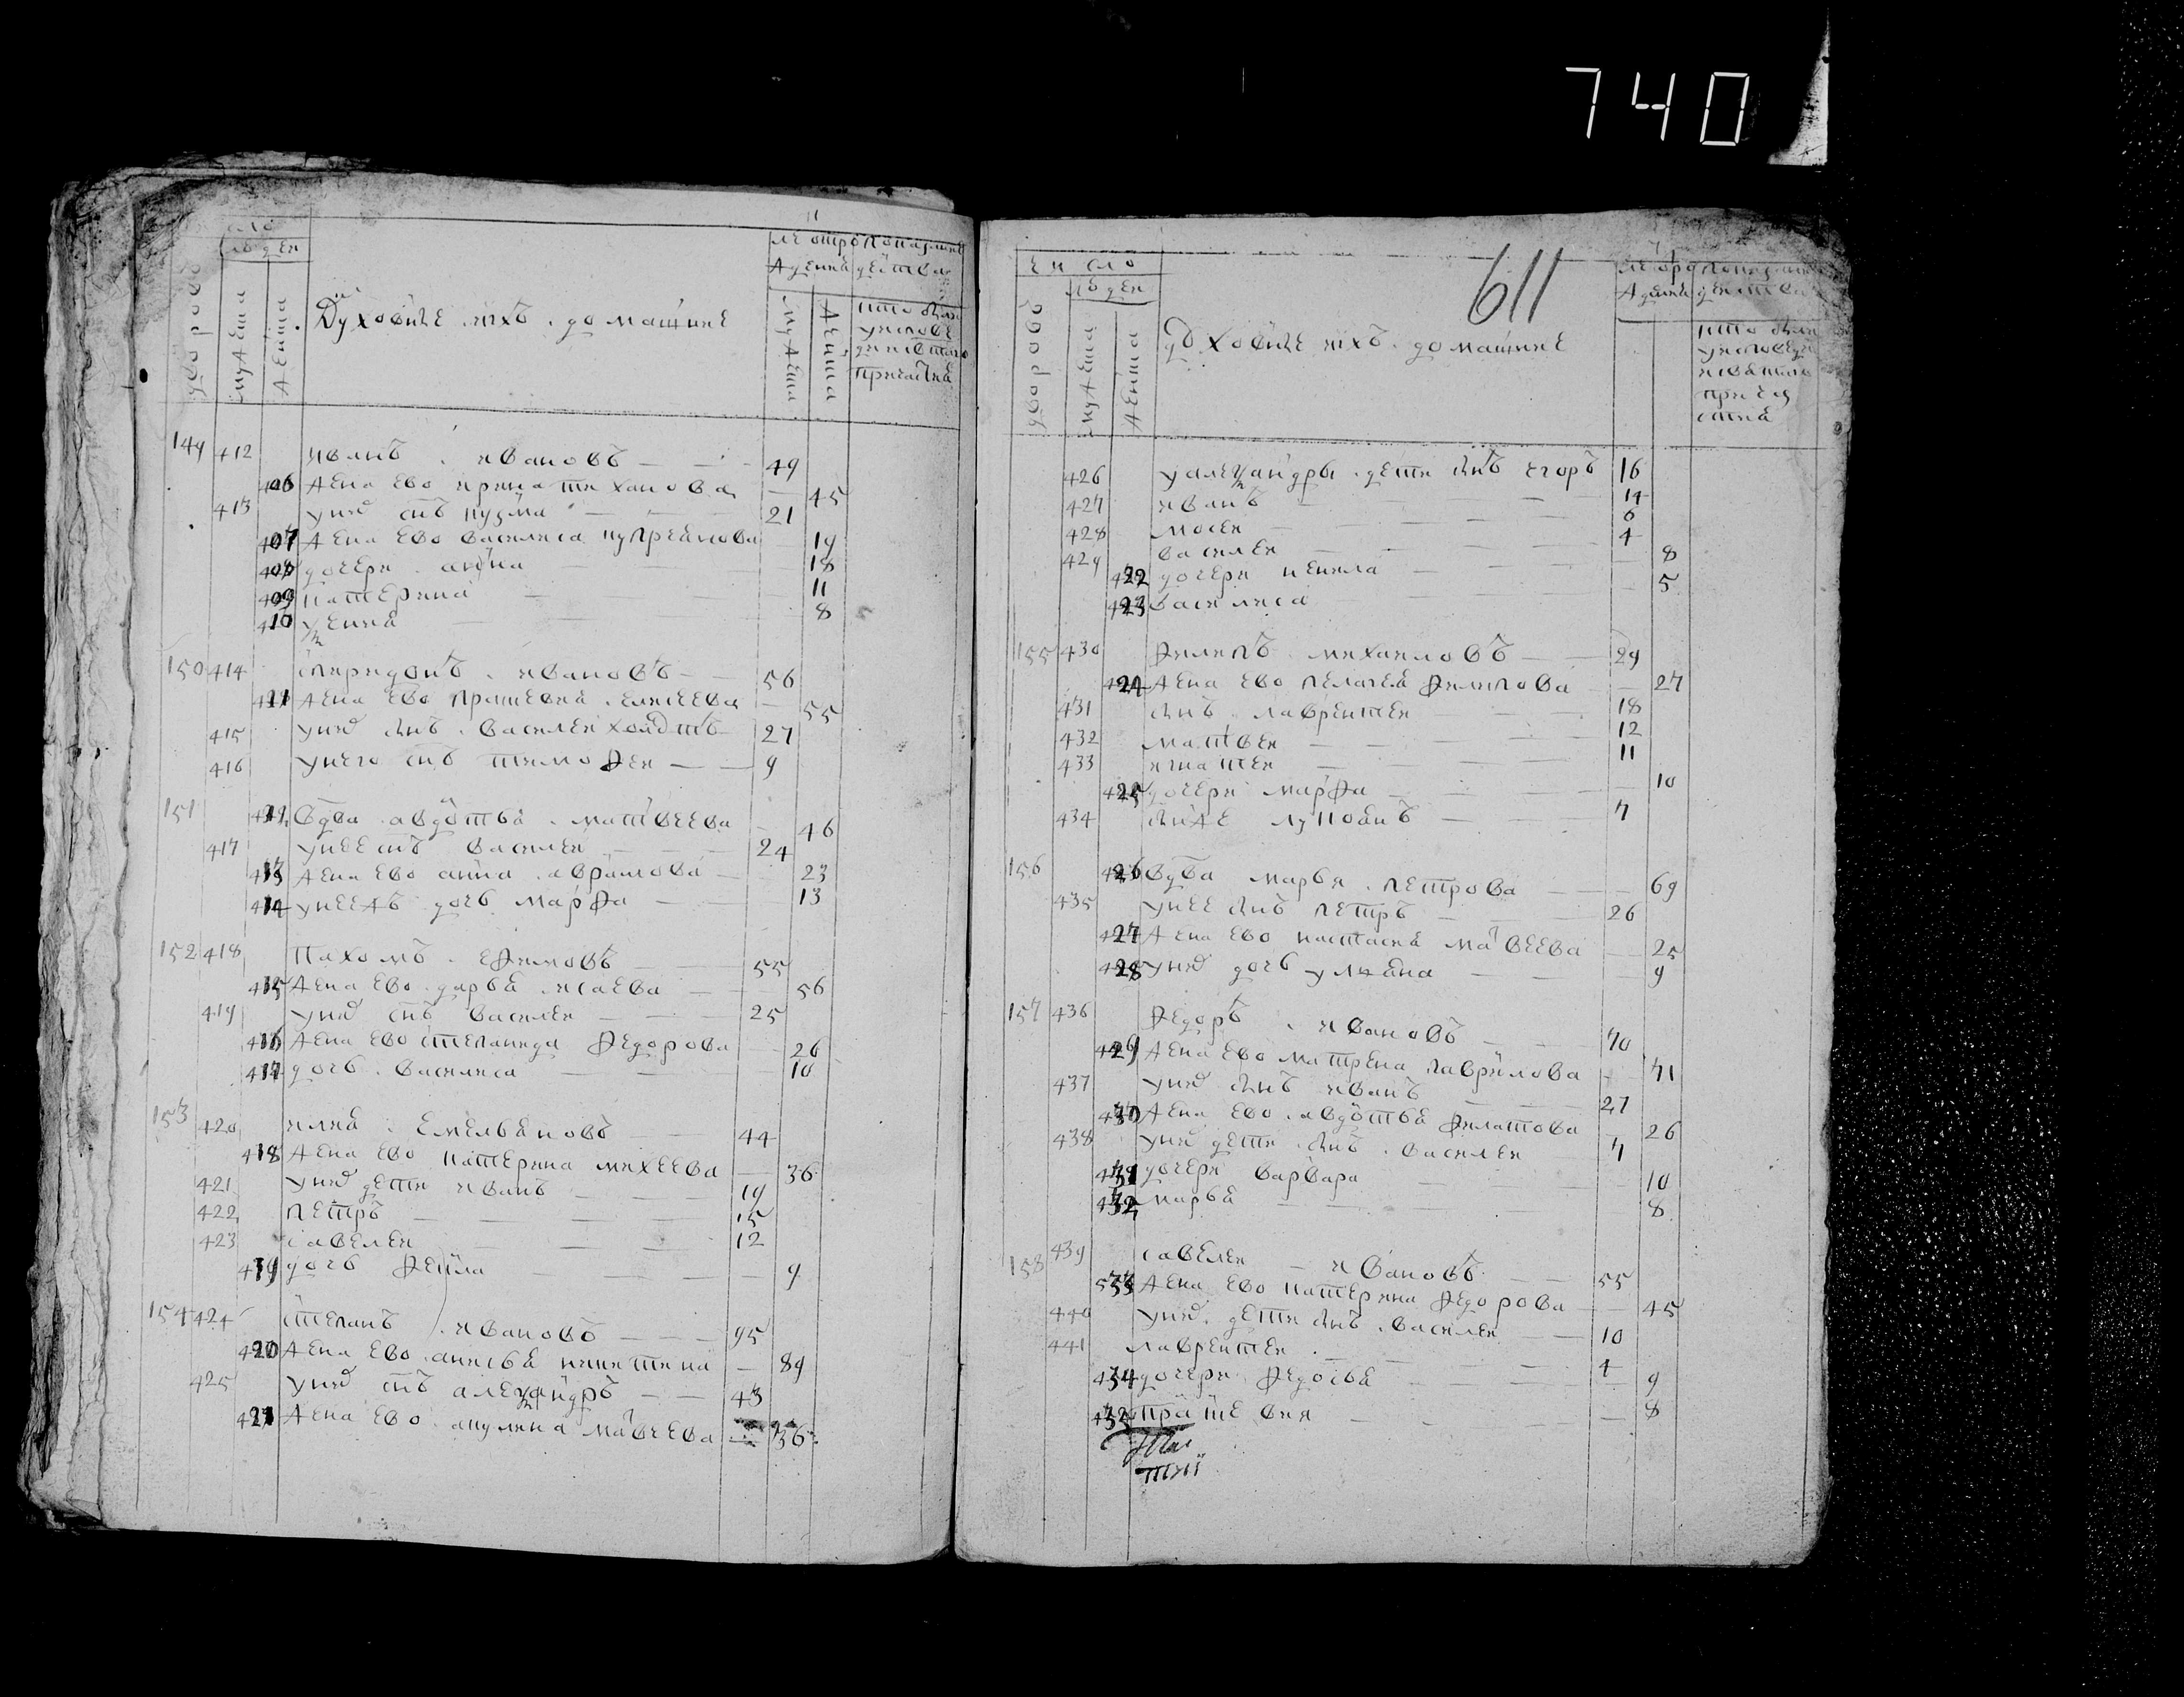 740
611
число
людеи
дворовъ
мужеска
женска
Духовные ихъ домашние
мужеска
женска
149 412 иванъ ивановъ 49
406 жена ево ирина тиханова 45
413 унид снъ кузма 21
407 жена ево василиса купреянова 19
408 дочери анна 18
409 катерина 11
410 ксения 8
150 414 спиридонъ ивановъ 56
411 жена ево прасковия елисеева 55
415 унид снъ василеи холостъ 27
416 унего снъ тимофеи 9
151 412 вдва авдотья матвеева 46
417 унее снъ василеи 24
413 жена ево анна аврамова 23
414 унееж дочь марфа 13
152 418 Пахомъ ефимовъ 55
415 жена ево дарья исаева 56
419 унид снъ василеи 25
416 жена ево степанида федорова 26
417 дочь василиса 10
153 420 илия емельяновъ 44
418 жена ево катерина михеева 36
421 унид дети иванъ 19
422 петръ 15
423 савелеи 12
419 дочь фекла 9
154 424 степанъ ивановъ 95
420 жена ево анисья никитина 89
425 унид снъ александръ 43
421 жена ево акулина матвеева 36
число
людеи
дворовъ
мужеска
женска
духовные ихъ домашние
426 уалександры дети снъ егоръ 16
427 иванъ 14
428 мосеи 6
429 василеи 4
422 дочери некила 8
423 василиса 5
155 430 филипъ михаиловъ 29
424 жена ево пелагея филипова 27
431 снъ лаврентеи 18
432 матвеи 12
433 игнатеи 11
425 дочери марфа 10
434 лукоянъ 7
156 426 вдва марья петрова 69
435 унее снъ петръ 26
427 жена ево настасия матвеева 25
428 унид дочь улияна 9
157 436 федоръ ивановъ 70
429 жена ево матрена гаврилова 71
437 унид снъ иванъ 27
430 жена ево авдотья филатова 26
438 унид дети снъ василеи 7
431 дочери варвара 10
432 марья 8
158 439 савелеи ивановъ 55
533 жена ево катерина федорова 45
440 унид дети снъ василеи 10
441 лаврентеи 4
434 дочери федосья 9
прасковия 8